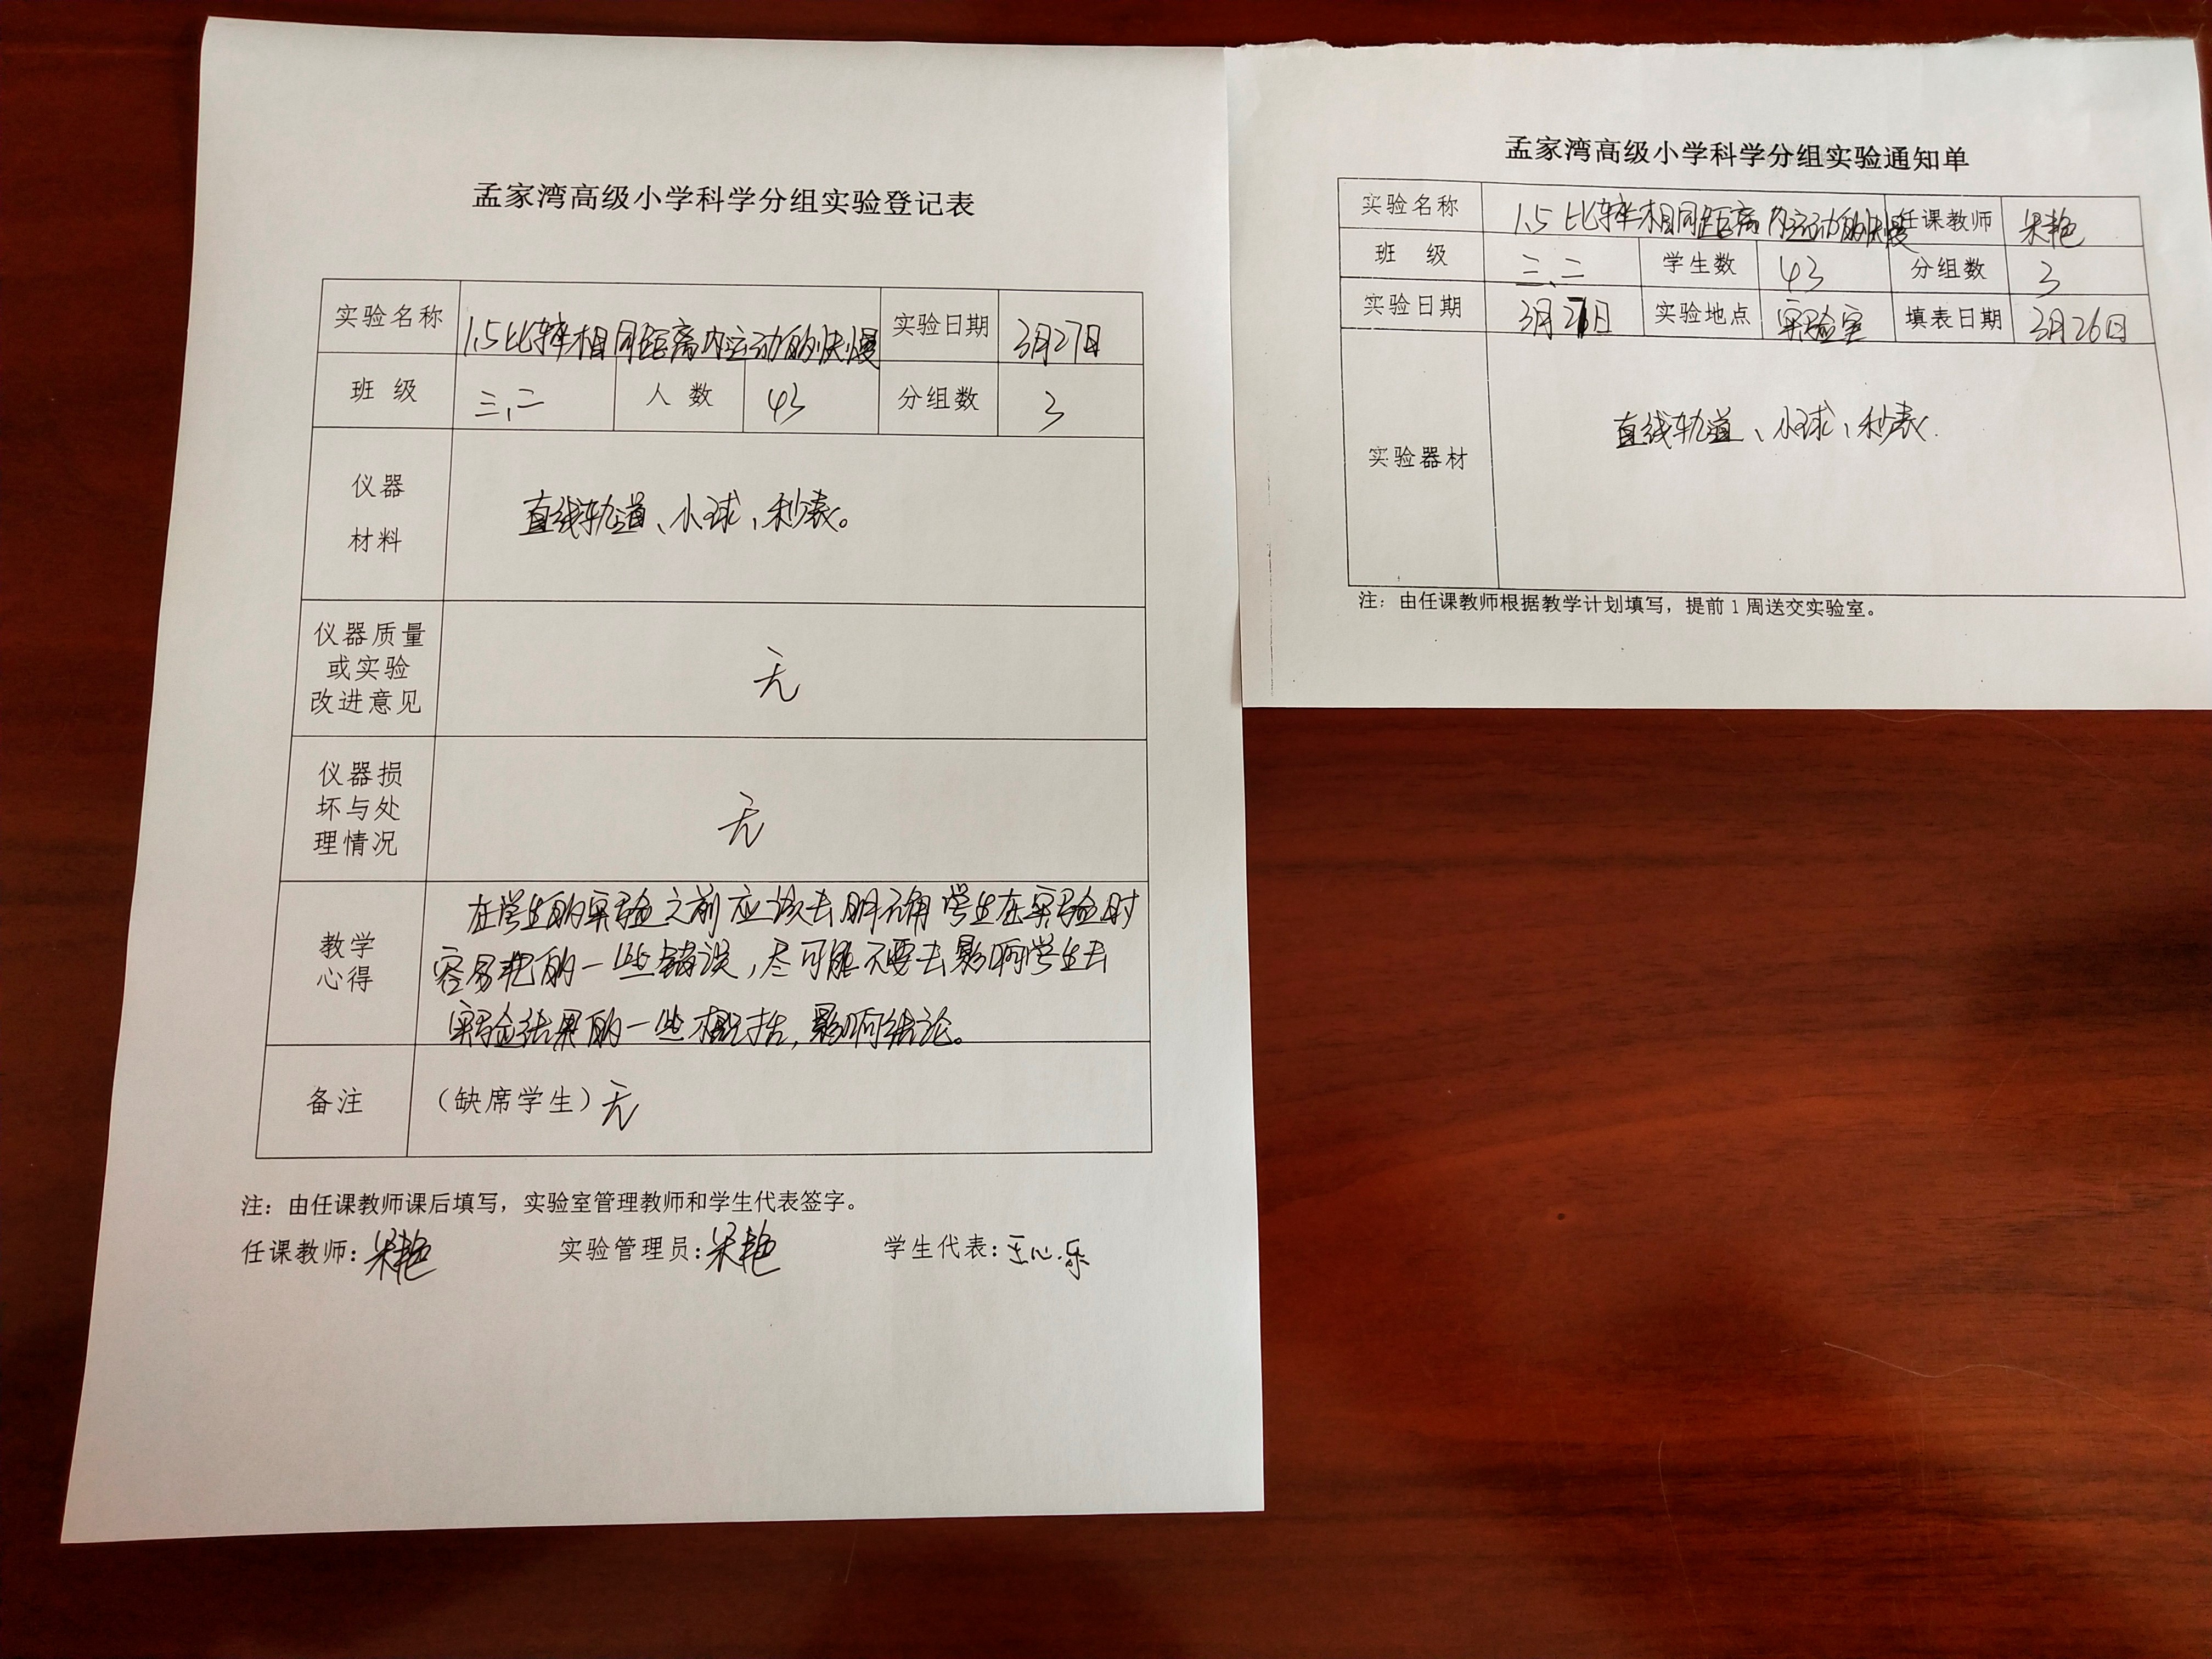 孟家湾高级小学科学分组实验登记表
实验名称 1.5比较相同距离内运动的快慢 实验日期 3月27日
班 级 三、二 人 数 43 分组数 3
仪器
材料
直线轨道、小球、秒表。
仪器质量
或实验
改进意见
无
仪器损
坏与处
理情况
无
教学
心得
在学生的实验之前应该去明确学生在实验时
容易犯的一些错误,尽可能不要去影响学生去
实验结果的一些概括,影响结论。
备注 (缺席学生)无
注:由任课教师课后填写,实验室管理教师和学生代表签字。
任课教师:梁艳 实验管理员:梁艳 学生代表:王心乐
孟家湾高级小学科学分组实验通知单
实验名称 1.5 比较相同距离内运动的快慢 任课教师 梁艳
班 级 三、二 学生数 43 分组数 3
实验日期 3月27日 实验地点 实验室 填表日期 3月26日
实验器材 直线轨道、小球、秒表.
注:由任课教师根据教学计划填写,提前1周送交实验室。